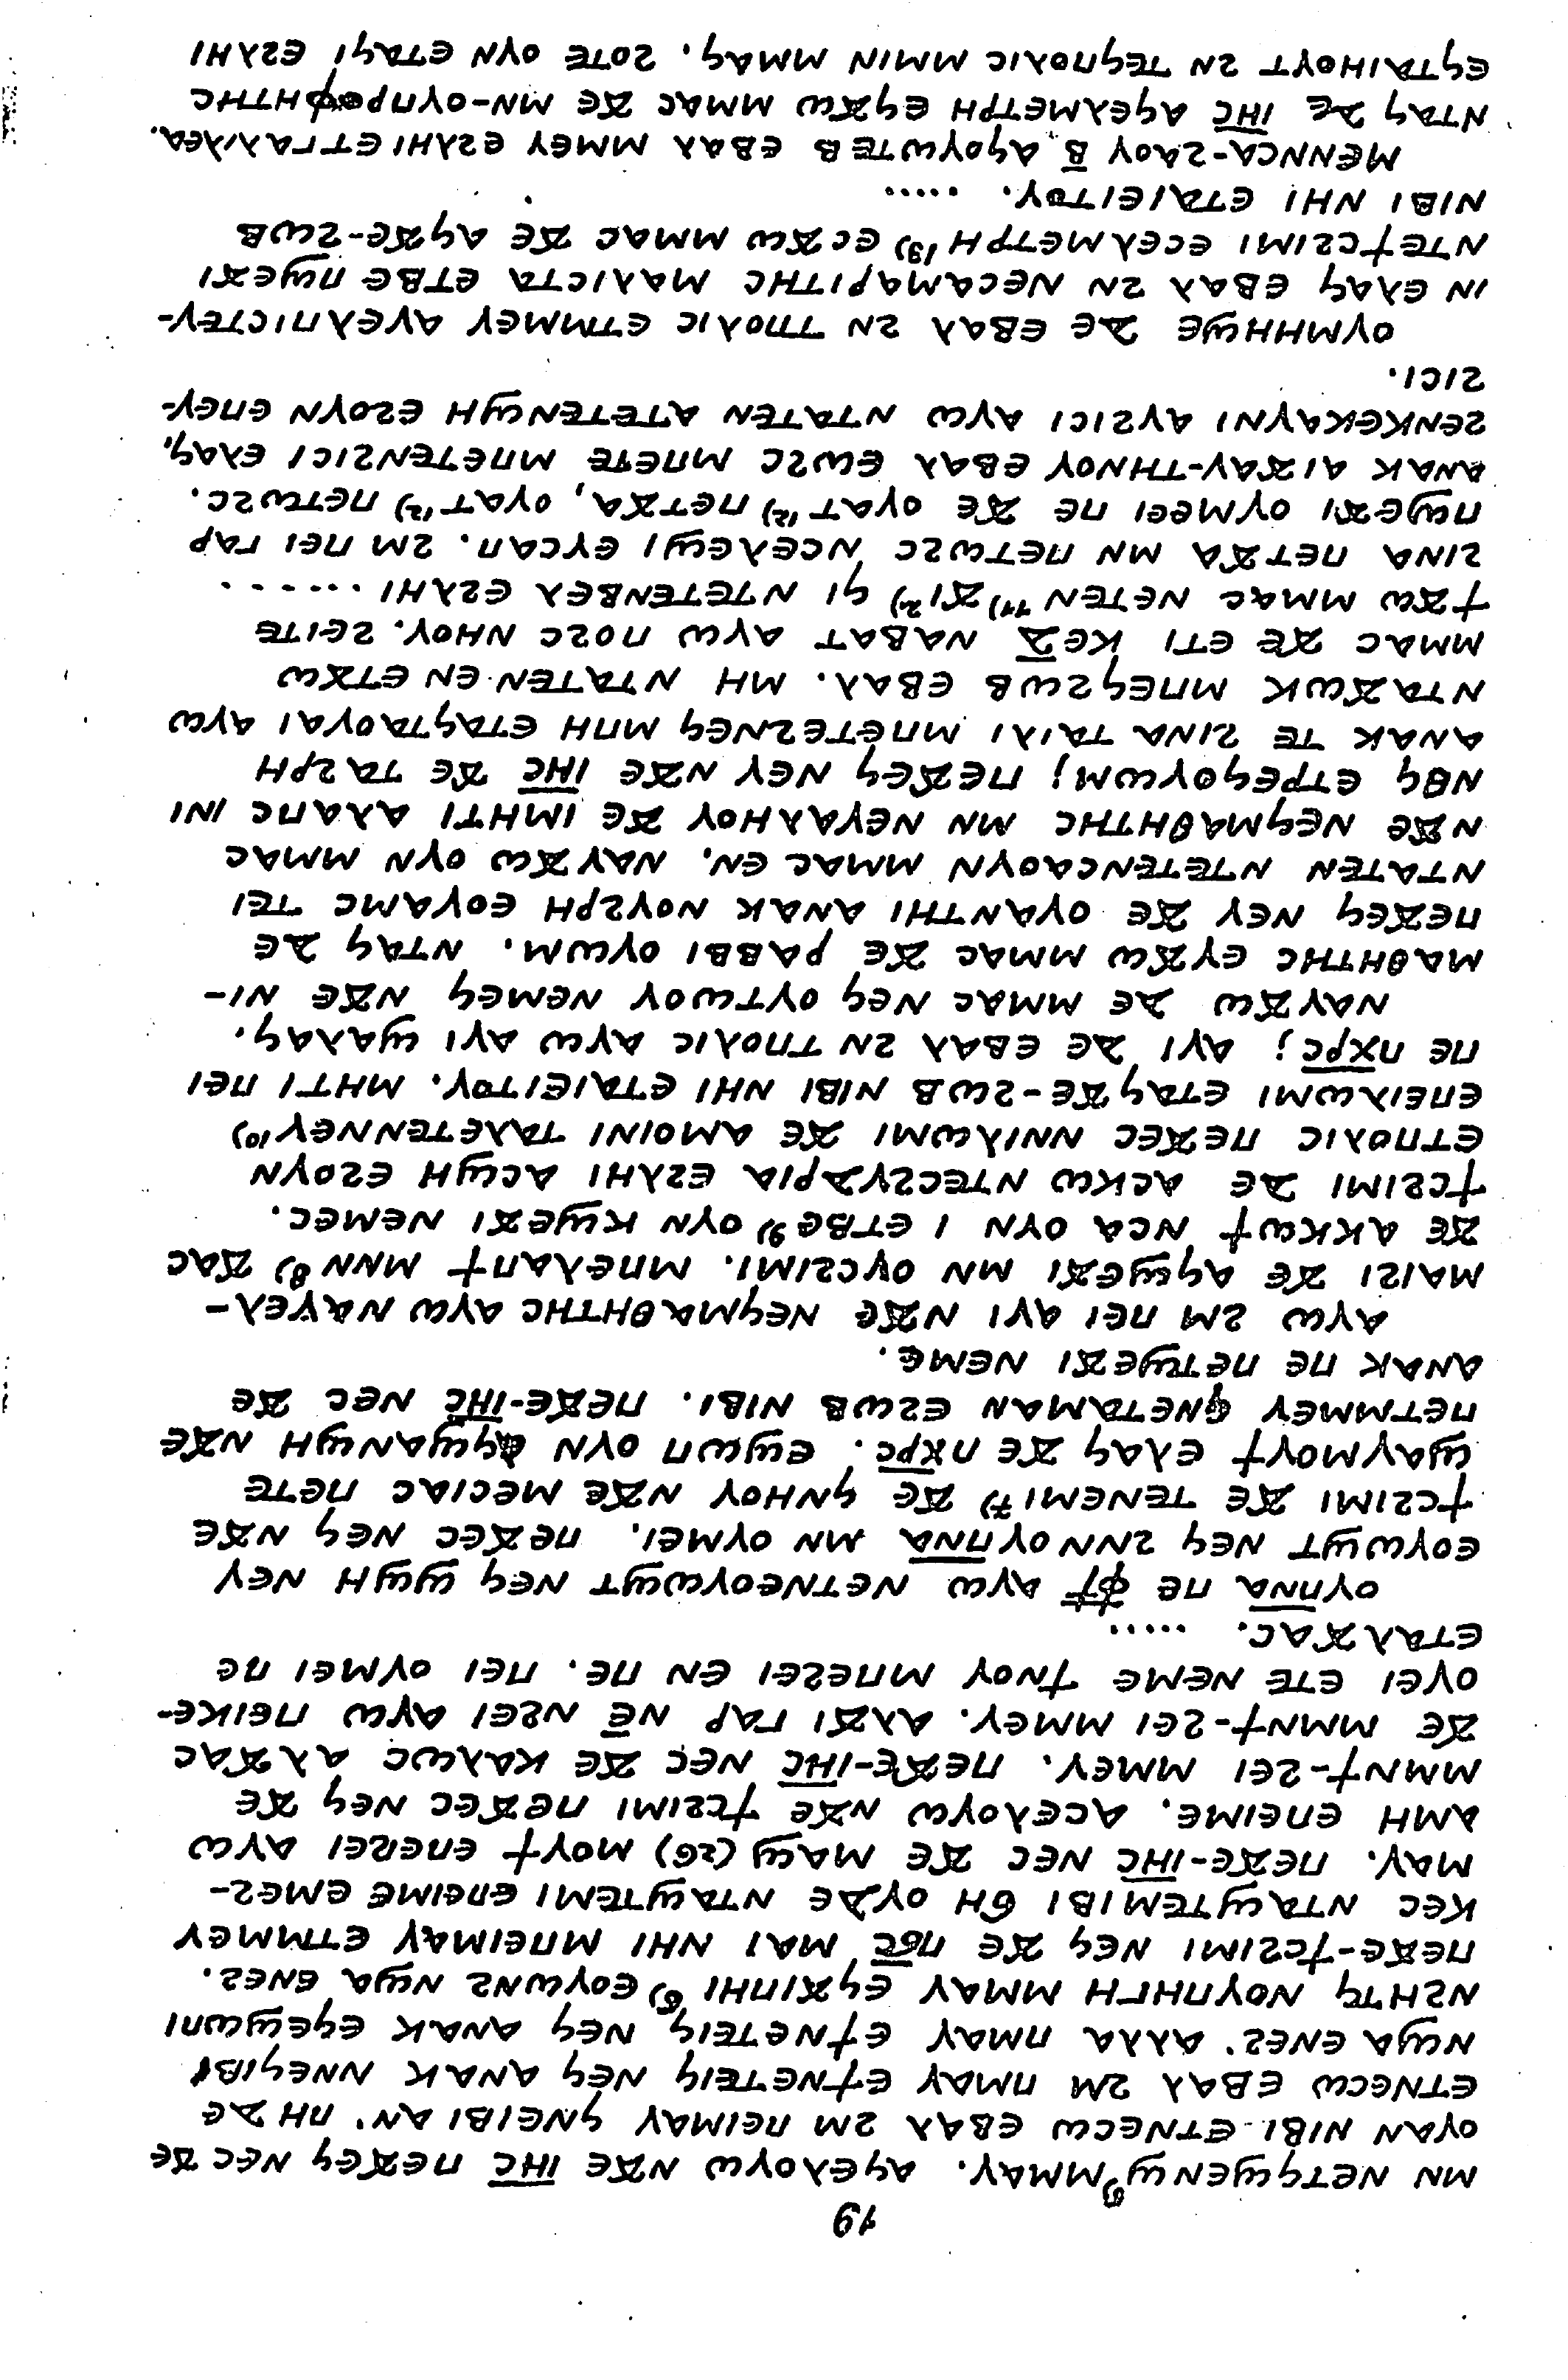 19
ⲙⲛ ⲛⲉⲧϥϣⲉⲛϣ⁵⁾ ⲙⲙⲁⲩ. ⲁϥⲉⲗⲟⲩⲱ ⲛϫⲉ ⲓ̅ⲏ̅ⲥ̅ ⲡⲉϫⲉϥ ⲛⲉⲥ ϫⲉ
ⲟⲩⲁⲛ ⲛⲓⲃⲓ ⲉⲧⲛⲉⲥⲱ ⲉⲃⲁⲗ ϩⲙ ⲡⲉⲓⲙⲁⲩ ϥⲛⲉⲓⲃⲓ ⲁⲛ. ⲡⲏ ⲇⲉ
ⲉⲧⲛⲉⲥⲱ ⲉⲃⲁⲗ ϩⲙ ⲡⲙⲁⲩ ⲉϯⲛⲉⲧⲉⲓϥ ⲛⲉϥ ⲁⲛⲁⲕ ⲛⲛⲉϥⲓⲃⲓ
ⲛϣⲁ ⲉⲛⲉϩ. ⲁⲗⲗⲁ ⲡⲙⲁⲩ ⲉϯⲛⲉⲧⲉⲓϥ ⲛⲉϥ ⲁⲛⲁⲕ ⲉϥⲉϣⲱⲡⲓ
ⲛϩⲏⲧϥ ⲛⲟⲩⲡⲏⲅⲏ ⲙⲙⲁⲩ ⲉϥϫⲓⲡⲏⲓ ⁶⁾ ⲉⲟⲩⲱⲛϩ ⲛϣⲁ ⲉⲛⲉϩ.
ⲡⲉϫⲉ-ϯⲥϩⲓⲙⲓ ⲛⲉϥ ϫⲉ ⲡ̅ϭ̅ⲥ̅ ⲙⲁⲓ ⲛⲏⲓ ⲙⲡⲉⲓⲙⲁⲩ ⲉⲧⲙⲙⲉⲩ
ⲕⲉⲥ ⲛⲧⲁϣⲧⲉⲙⲓⲃⲓ ϭⲏ ⲟⲩⲇⲉ ⲛⲧⲁϣⲧⲉⲙⲓ ⲉⲡⲉⲓⲙⲉ ⲉⲙⲉϩ-
ⲙⲁⲩ. ⲡⲉϫⲉ-ⲓ̅ⲏ̅ⲥ̅ ⲛⲉⲥ ϫⲉ ⲙⲁϣ (26) ⲙⲟⲩϯ ⲉⲡⲉϩⲉⲓ ⲁⲩⲱ
ⲁⲙⲏ ⲉⲡⲉⲓⲙⲉ. ⲁⲥⲉⲗⲟⲩⲱ ⲛϫⲉ ϯⲥϩⲓⲙⲓ ⲡⲉϫⲉⲥ ⲛⲉϥ ϫⲉ
ⲙⲙⲛϯ-ϩⲉⲓ ⲙⲙⲉⲩ. ⲡⲉϫⲉ-ⲓ̅ⲏ̅ⲥ̅ ⲛⲉⲥ ϫⲉ ⲕⲁⲗⲱⲥ ⲁⲗϫⲁⲥ
ϫⲉ ⲙⲙⲛϯ-ϩⲉⲓ ⲙⲙⲉⲩ. ⲁⲗϫⲓ ⲅⲁⲣ ⲛⲉ̅ ⲛϩⲉⲓ ⲁⲩⲱ ⲡⲉⲓⲕⲉ-
ⲟⲩⲉⲓ ⲉⲧⲉ ⲛⲉⲙⲉ ϯⲛⲟⲩ ⲙⲡⲉϩⲉⲓ ⲉⲛ ⲡⲉ. ⲡⲉⲓ ⲟⲩⲙⲉⲓ ⲡⲉ
ⲉⲧⲁⲗϫⲁⲥ. .....
ⲟⲩⲡ̅ⲛ̅ⲁ̅ ⲡⲉ ⲫ̅ϯ̅ ⲁⲩⲱ ⲛⲉⲧⲛⲉⲟⲩⲱϣⲧ ⲛⲉϥ ϣϣⲏ ⲛⲉⲩ
ⲉⲟⲩⲱϣⲧ ⲛⲉϥ ϩⲛⲛ ⲟⲩⲡ̅ⲛ̅ⲁ̅ ⲙⲛ ⲟⲩⲙⲉⲓ. ⲡⲉϫⲉⲥ ⲛⲉϥ ⲛϫⲉ
ϯⲥϩⲓⲙⲓ ϫⲉ ⲧⲉⲛⲉⲙⲓ ⁷⁾ ϫⲉ ϥⲛⲏⲟⲩ ⲛϫⲉ ⲙⲉⲥⲓⲁⲥ ⲡⲉⲧⲉ
ϣⲁⲩⲙⲟⲩϯ ⲉⲗⲁϥ ϫⲉ ⲡ̅ⲭ̅ⲣ̅ⲥ̅. ⲉϣⲱⲡ ⲟⲩⲛ ⲁϥϣⲁⲛϣⲏ ⲛϫⲉ
ⲡⲉⲧⲙⲙⲉⲩ ϥⲛⲉⲧⲁⲙⲁⲛ ⲉϩⲱⲃ ⲛⲓⲃⲓ. ⲡⲉϫⲉ-ⲓ̅ⲏ̅ⲥ̅ ⲛⲉⲥ ϫⲉ
ⲁⲛⲁⲕ ⲡⲉ ⲡⲉⲧϣⲉϫⲓ ⲛⲉⲙⲉ.
ⲁⲩⲱ ϩⲙ ⲡⲉⲓ ⲁⲩⲓ ⲛϫⲉ ⲛⲉϥⲙⲁⲑⲏⲧⲏⲥ ⲁⲩⲱ ⲛⲁⲩⲉⲗ-
ⲙⲁⲓϩⲓ ϫⲉ ⲁϥϣⲉϫⲓ ⲙⲛ ⲟⲩⲥϩⲓⲙⲓ. ⲙⲡⲉⲗⲁⲡϯ ⲙⲛⲛ ⁸⁾ ϫⲁⲥ
ϫⲉ ⲁⲕⲕⲱϯ ⲛⲥⲁ ⲟⲩⲛ ⲓ ⲉⲧⲃⲉ ⁹⁾ ⲟⲩⲛ ⲕϣⲉϫⲓ ⲛⲉⲙⲉⲥ.
ϯⲥϩⲓⲙⲓ ⲇⲉ ⲁⲥⲕⲱ ⲛⲧⲉⲥϩⲩⲇⲣⲓⲁ ⲉϩⲗⲏⲓ ⲁⲥϣⲏ ⲉϩⲟⲩⲛ
ⲉⲧⲡⲟⲗⲓⲥ ⲡⲉϫⲉⲥ ⲛⲛⲓⲗⲱⲙⲓ ϫⲉ ⲁⲙⲟⲓⲛⲓ ⲧⲁⲗⲉⲧⲉⲛⲛⲉⲩ ¹⁰⁾
ⲉⲡⲉⲓⲗⲱⲙⲓ ⲉⲧⲁϥϫⲉ-ϩⲱⲃ ⲛⲓⲃⲓ ⲛⲏⲓ ⲉⲧⲁⲓⲉⲓⲧⲟⲩ. ⲙⲏⲧⲓ ⲡⲉⲓ
ⲡⲉ ⲡ̅ⲭ̅ⲣ̅ⲥ̅; ⲁⲩⲓ ⲇⲉ ⲉⲃⲁⲗ ϩⲛ ⲧⲡⲟⲗⲓⲥ ⲁⲩⲱ ⲁⲩⲓ ϣⲁⲗⲁϥ.
ⲛⲁⲩϫⲱ ⲇⲉ ⲙⲙⲁⲥ ⲛⲉϥ ⲟⲩⲧⲱⲟⲩ ⲛⲉⲙⲉϥ ⲛϫⲉ ⲛⲓ-
ⲙⲁⲑⲏⲧⲏⲥ ⲉⲩϫⲱ ⲙⲙⲁⲥ ϫⲉ ⲣⲁⲃⲃⲓ ⲟⲩⲱⲙ. ⲛⲧⲁϥ ⲇⲉ
ⲡⲉϫⲉϥ ⲛⲉⲩ ϫⲉ ⲟⲩⲁⲛⲧⲏⲓ ⲁⲛⲁⲕ ⲛⲟⲩϩⲣⲏ ⲉⲟⲩⲁⲙⲥ ⲧⲉⲓ
ⲛⲧⲁⲧⲉⲛ ⲛⲧⲉⲧⲉⲛⲥⲁⲟⲩⲛ ⲙⲙⲁⲥ ⲉⲛ. ⲛⲁⲩϫⲱ ⲟⲩⲛ ⲙⲙⲁⲥ
ⲛϫⲉ ⲛⲉϥⲙⲁⲑⲏⲧⲏⲥ ⲙⲛ ⲛⲉⲩⲁⲗⲏⲟⲩ ϫⲉ ⲓⲙⲏⲧⲓ ⲁⲗⲁⲡⲥ ⲓⲛⲓ
ⲛⲑϥ ⲉⲧⲣⲉϥⲟⲩⲱⲙ; ⲡⲉϫⲉϥ ⲛⲉⲩ ⲛϫⲉ ⲓ̅ⲏ̅ⲥ̅ ϫⲉ ⲧⲁϩⲣⲏ
ⲁⲛⲁⲕ ⲧⲉ ϩⲓⲛⲁ ⲧⲁⲓⲗⲓ ⲙⲡⲉⲧⲉϩⲛⲉϥ ⲙⲡⲏ ⲉⲧⲁϥⲧⲁⲟⲩⲁⲓ ⲁⲩⲱ
ⲛⲧⲁϫⲱⲕ ⲙⲡⲉϥϩⲱⲃ ⲉⲃⲁⲗ. ⲙⲏ ⲛⲧⲁⲧⲉⲛ ⲉⲛ ⲉⲧϫⲱ
ⲙⲙⲁⲥ ϫⲉ ⲉⲧⲓ ⲕⲉⲇ̅ ⲛⲁⲃⲁⲧ ⲁⲩⲱ ⲡⲟϩⲥ ⲛⲏⲟⲩ. ϩⲉⲓⲧⲉ
ϯϫⲱ ⲙⲙⲁⲥ ⲛⲉⲧⲉⲛ ¹¹⁾ ϫⲓ²⁾ ϥⲓ ⲛⲧⲉⲧⲉⲛⲃⲉⲗ ⲉϩⲗⲏⲓ .......
ϩⲓⲛⲁ ⲡⲉⲧϫⲁ ⲙⲛ ⲡⲉⲧⲱϩⲥ ⲛⲥⲉⲗⲉϣⲓ ⲉⲩⲥⲁⲡ. ϩⲙ ⲡⲉⲓ ⲅⲁⲣ
ⲡϣⲉϫⲓ ⲟⲩⲙⲉⲉⲓ ⲡⲉ ϫⲉ ⲟⲩⲁⲧ ¹²⁾ ⲡⲉⲧϫⲁ, ⲟⲩⲁⲧ ¹²⁾ ⲡⲉⲧⲱϩⲥ.
ⲁⲛⲁⲕ ⲁⲓϫⲁⲩ-ⲧⲏⲛⲟⲩ ⲉⲃⲁⲗ ⲉⲱϩⲥ ⲙⲡⲉⲧⲉ ⲙⲡⲉⲧⲉⲛϩⲓⲥⲓ ⲉⲗⲁϥ,
ϩⲉⲛⲕⲉⲕⲁⲩⲛⲓ ⲁⲩϩⲓⲥⲓ ⲁⲩⲱ ⲛⲧⲁⲧⲉⲛ ⲁⲧⲉⲧⲉⲛϣⲏ ⲉϩⲟⲩⲛ ⲉⲡⲉⲩ-
ϩⲓⲥⲓ.
ⲟⲩⲙⲏⲏϣⲉ ⲇⲉ ⲉⲃⲁⲗ ϩⲛ ⲧⲡⲟⲗⲓⲥ ⲉⲧⲙⲙⲉⲩ ⲁⲩⲉⲗⲡⲓⲥⲧⲉⲩ-
ⲓⲛ ⲉⲗⲁϥ ⲉⲃⲁⲗ ϩⲛ ⲛⲉⲥⲁⲙⲁⲣⲓⲧⲏⲥ ⲙⲁⲗⲓⲥⲧⲁ ⲉⲧⲃⲉ ⲡϣⲉϫⲓ
ⲛⲧⲉϯⲥϩⲓⲙⲓ ⲉⲥⲉⲗⲙⲉⲧⲣⲏ ¹³⁾ ⲉⲥϫⲱ ⲙⲙⲁⲥ ϫⲉ ⲁϥϫⲉ-ϩⲱⲃ
ⲛⲓⲃⲓ ⲛⲏⲓ ⲉⲧⲁⲓⲉⲓⲧⲟⲩ. .....
ⲙⲉⲛⲛⲥⲁ-ϩⲁⲟⲩ ⲃ̅ ⲁϥⲟⲩⲱⲧⲉⲃ ⲉⲃⲁⲗ ⲙⲙⲉⲩ ⲉϩⲗⲏⲓ ⲉⲧⲅⲁⲗⲗⲉⲁ.
ⲛⲧⲁϥ ⲇⲉ ⲓ̅ⲏ̅ⲥ̅ ⲁϥⲉⲗⲙⲉⲧⲣⲏ ⲉϥϫⲱ ⲙⲙⲁⲥ ϫⲉ ⲙⲛ-ⲟⲩⲡⲣⲟⲫⲏⲧⲏⲥ
ⲉϥⲧⲁⲓⲏⲟⲩⲧ ϩⲛ ⲧⲉϥⲡⲟⲗⲓⲥ ⲙⲙⲓⲛ ⲙⲙⲁϥ. ϩⲟⲧⲉ ⲟⲩⲛ ⲉⲧⲁϥⲓ ⲉϩⲗⲏⲓ